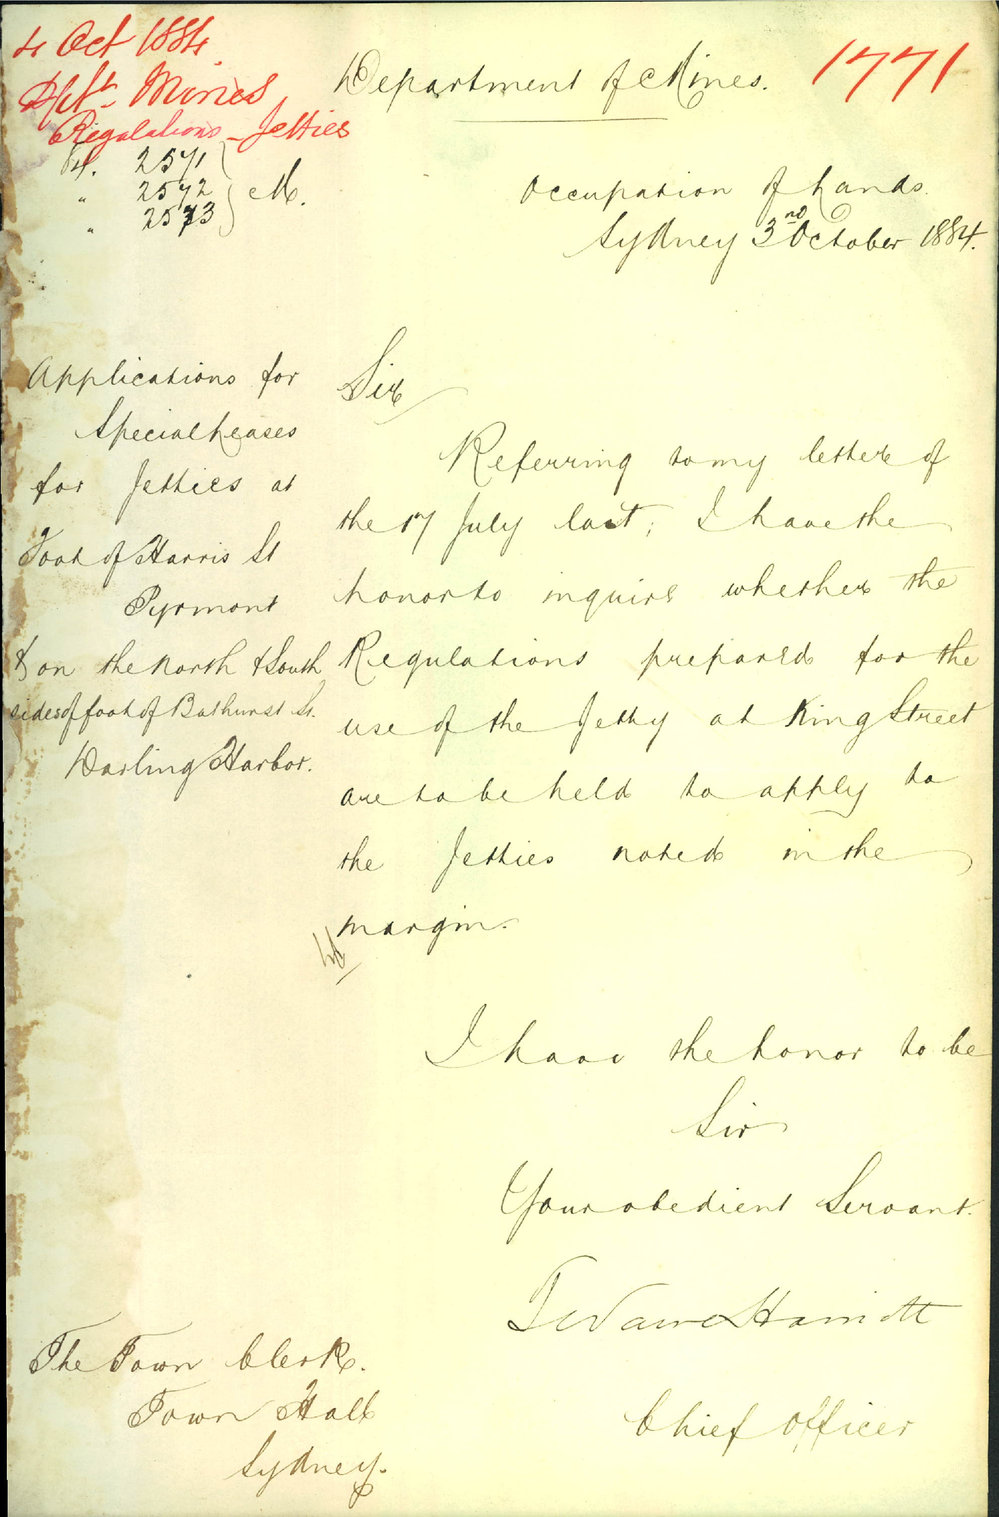 4 Oct 1884
Dept. Mines
Regulations - Jetties
84. 2571
" 2572 M.
" 2573
Department of Mines.
1771
Occupation of Lands.
Sydney 3rd October 1884.
Applications for
Special Leases
for Jetties at
Foot of Harris St
Pyrmont
& on the north & South
sides of foot of Bathurst St.
Darling Harbor.
Sir
Referring to my letter of
the 17 July last, I have the
honor to inquire whether the
Regulations prepared for the
use of the Jetty at King Street
are to be held to apply to
the Jetties noted in the
margin.
I have the honor to be
Sir
Your obedient Servant.
Chief Officer
The Town Clerk.
Town Hall
Sydney.